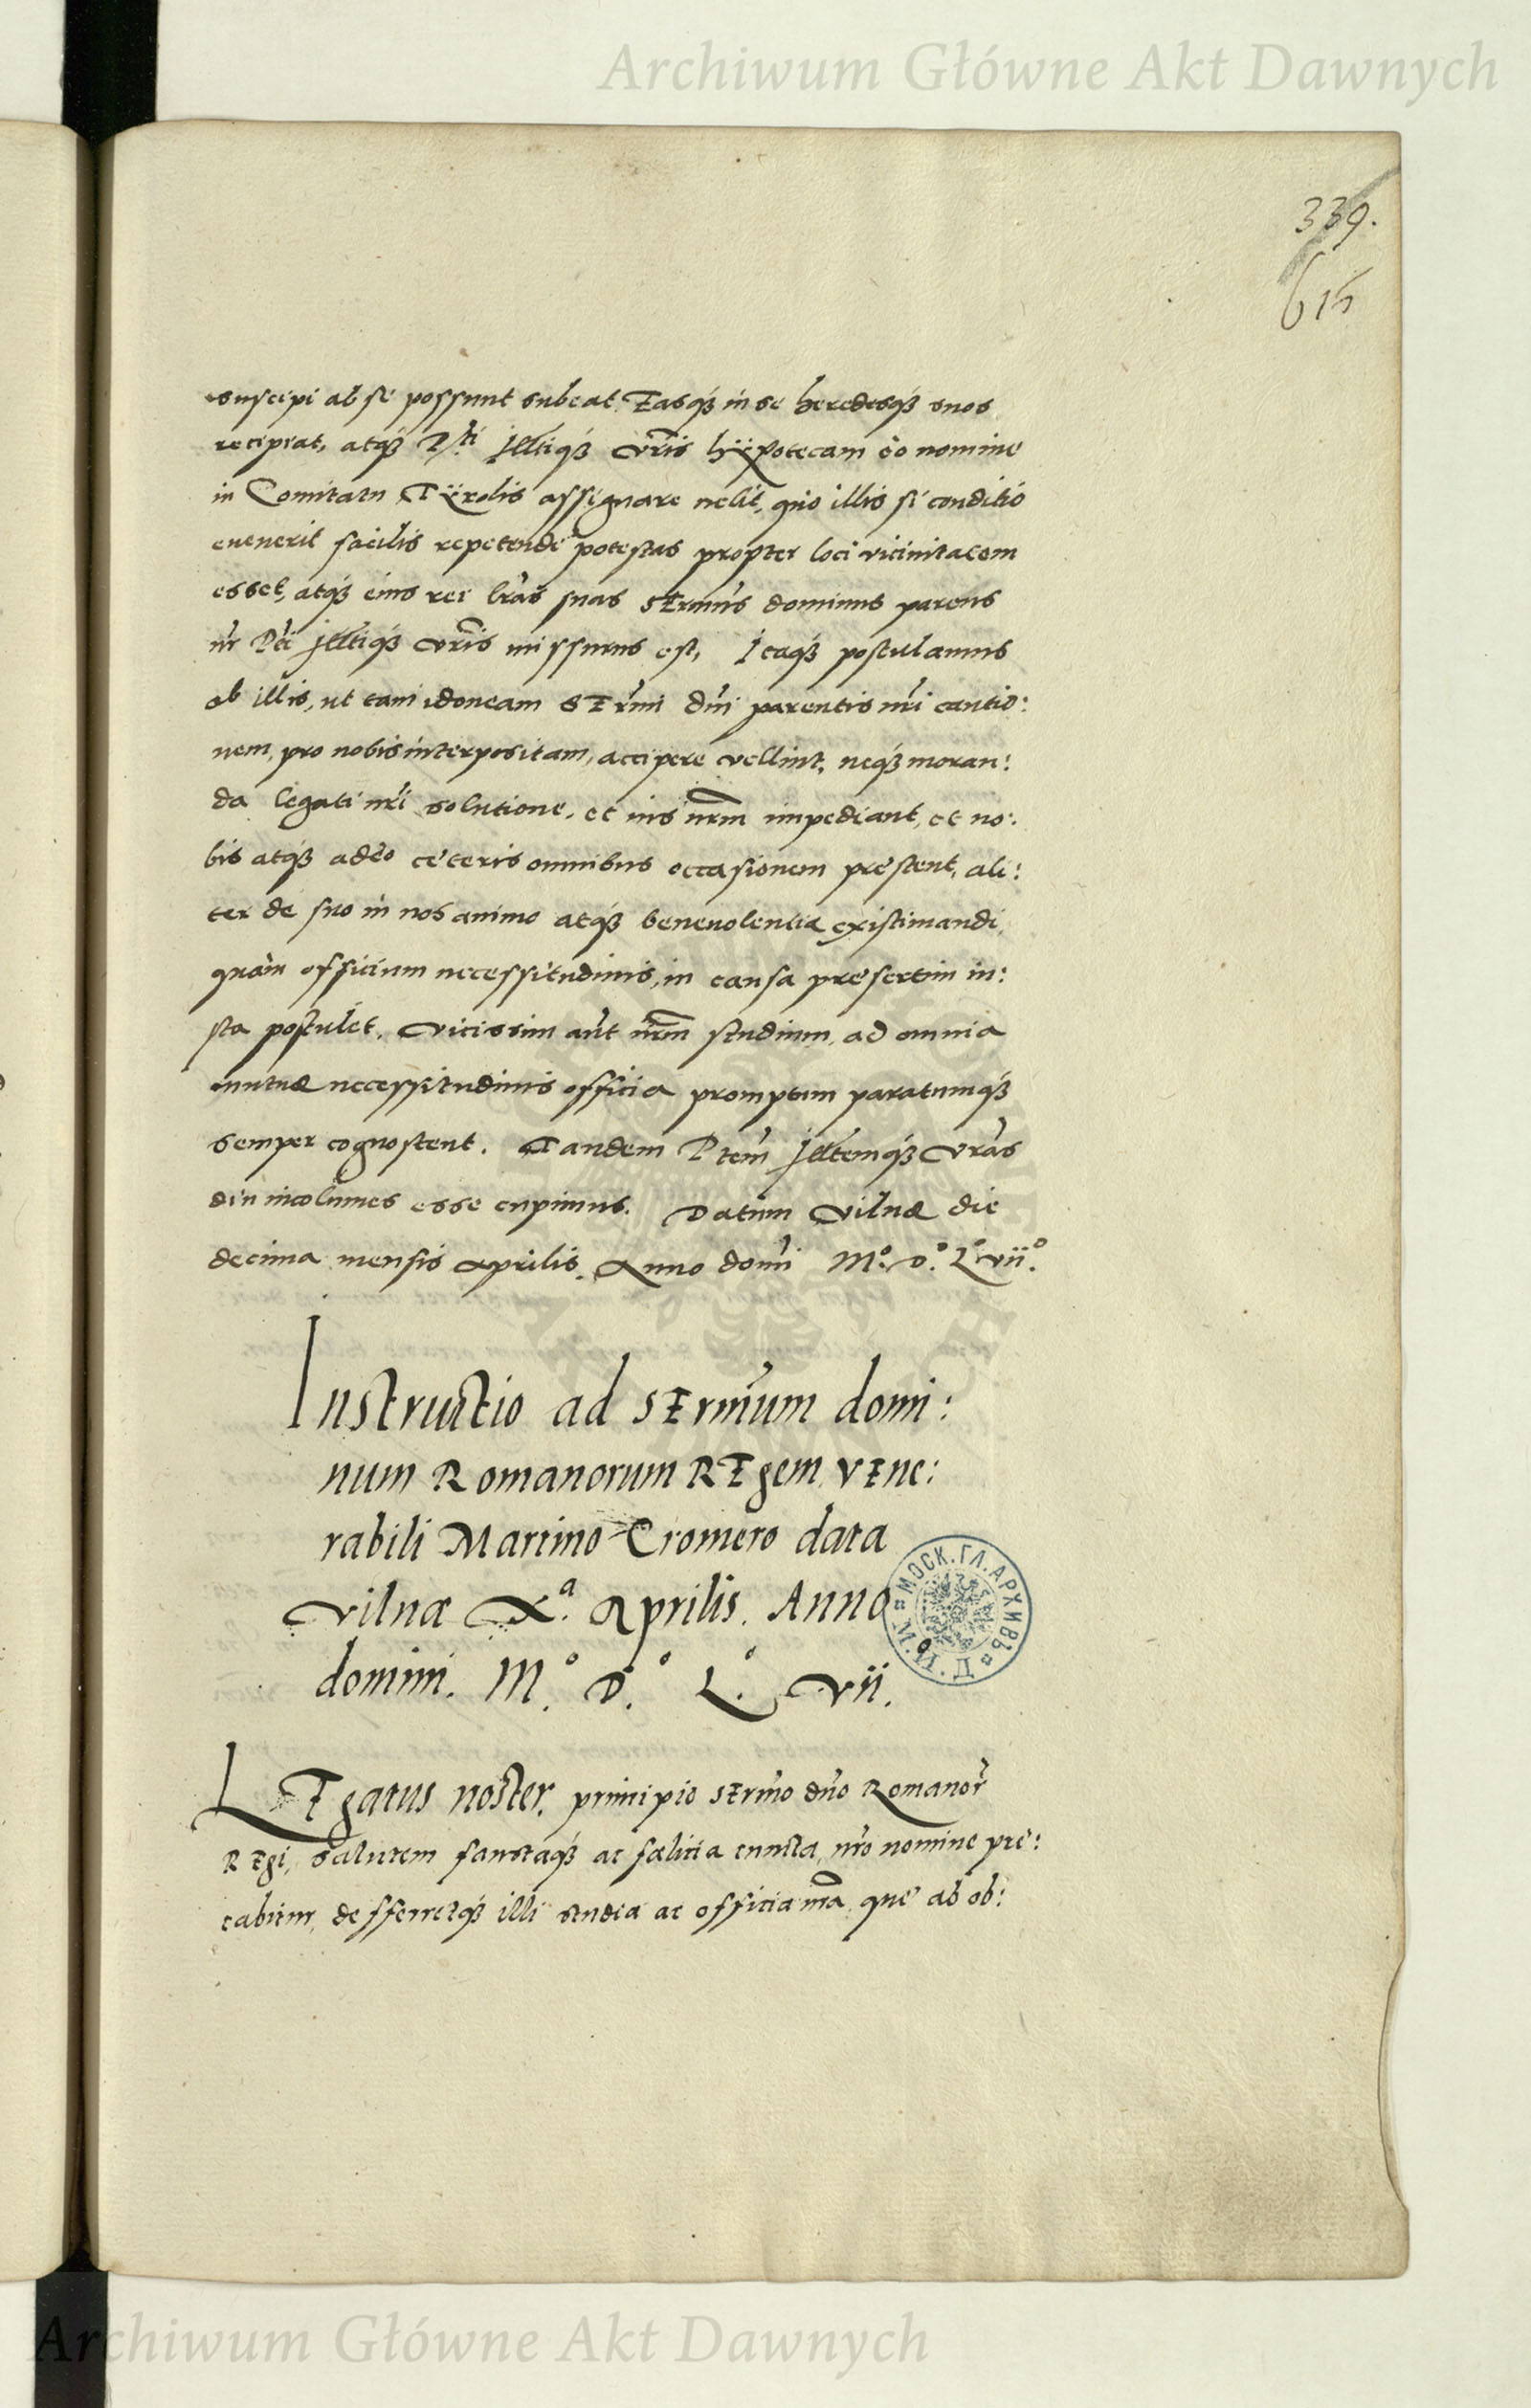 Archiwum Główne Akt Dawnych
339.
615
suscipi ab se possunt subeat, Easq₃ in se heredesq₃ suos
recipiat, atq₃ P^ti Illtiq₃ Vr̃is hÿpotecam eo nomine
in Comitatu Tÿrolis assignare uelit, quo illis si conditio
euenerit facilis repetendę potestas propter loci vicinitatem
esset, atq₃ eius rei lr̃as suas SErmus dominus parens
nr̃ Pti Illtiq₃ Vr̃is missurus est, Itaq₃ postulamus
ab illis, ut tam idoneam SErmi dñi parentis nr̃i cautio:
nem, pro nobis interpositam, accipere vellint, neq₃ moran:
da legati nr̃i solutione, et ius nr̃m impediant, et no:
bis atq₃ adeo cęteris omnibus occasionem pręstent, ali:
ter de suo in nos animo atq₃ beneuolentia existimandi,
quàm officium necessitudinis, in causa pręsertim iu:
sta postulet. Vicissim aũt nr̃m studium, ad omnia
mutuæ necessitudinis officia promptum paratumq₃
semper cognoscent. Tandem Ptem Illtemq₃ Vr̃as
diu incolumes esse cupimus. Datum Vilnæ die
decima mensis Aprilis. Anno domĩ M.° D.° L.° vii.°
Instructio ad SErmum domi:
num Romanorum REgem VEne:
rabili Martino Cromero data
Vilnæ X.ª Aprilis. Anno
domini. M.° D.° L.° vii.°
МОСК. ГЛ. АРХИВЪ М. И. Д.
LEgatus noster, principio SErmo dño Romanor̃
REgi, salutem faustaq₃ ac fœlicia cuncta, nr̃o nomine prę:
cabitur, defferretq₃ illi studia ac officia nr̃a, quę ab ob:
Archiwum Główne Akt Dawnych